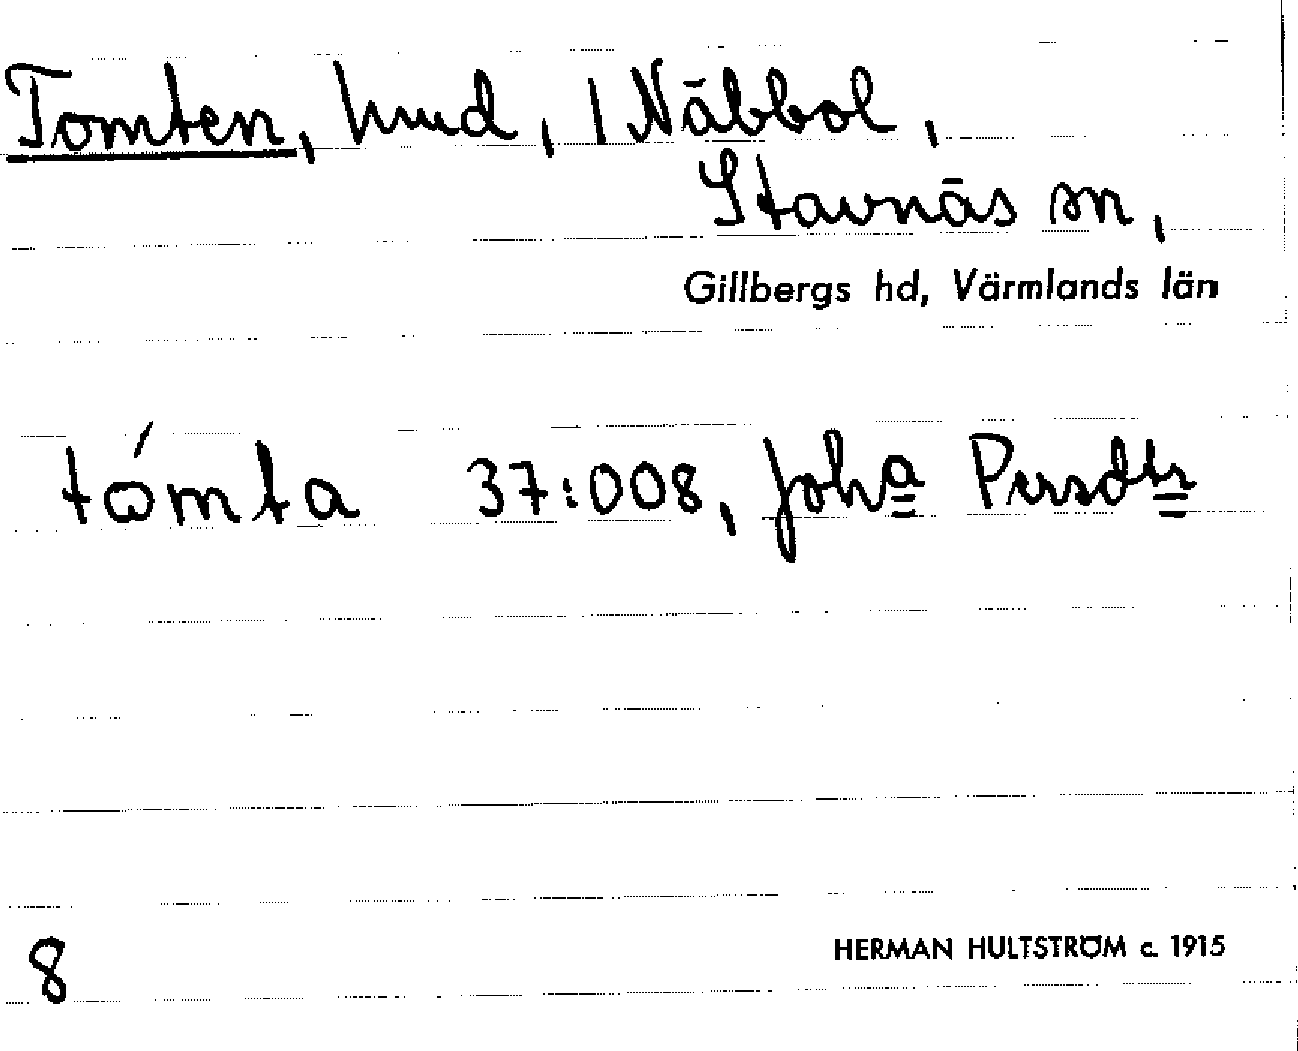 Tomten, hmd, 1 Näbbol,
Stavnäs sn,
Gillbergs hd, Värmlands län
tómta 37:008, Joha Persdtr
8
HERMAN HULTSTRÖM c. 1915